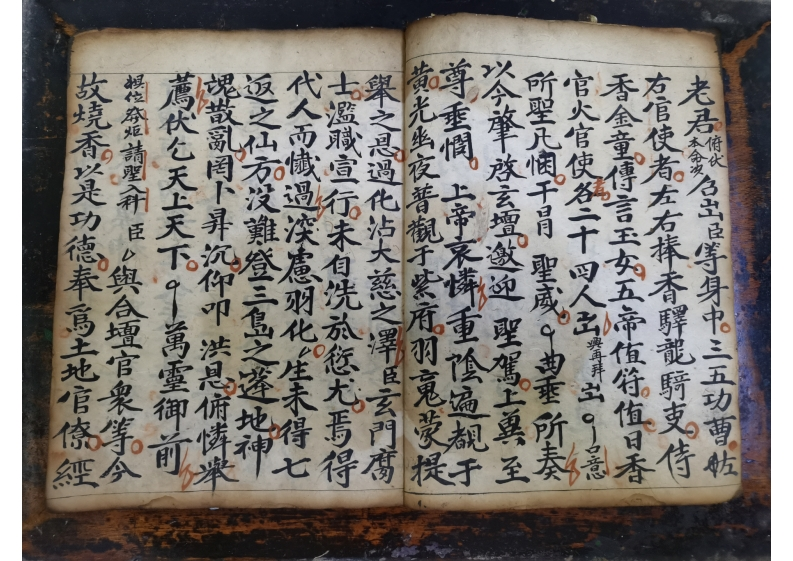 老君俯伏本命次召出臣等身中三五功曹左
右官使者左右捧香驛龍騎吏侍
香金童傳言玉女五帝值符值日香
官火官使各二十四人出興再拜出口意
所聖凡悃干冒聖威曲垂所奏
以今肇啓玄壇邀迎聖駕上冀至
尊垂憫上帝哀憐重陰遍覩于
黃光幽夜普觀于紫府羽蒙提
舉之恩過化沾大慈之澤臣玄門腐
士濫職宣行未自洗於愆尤焉得
代人而懺過深慮羽化生未得七
返之仙方沒難登三島之蓬地神
魂散亂罔卜昇沉仰叩洪恩俯憐舉
薦伏乞天上天下萬靈御前
請聖入科臣與合壇官衆等今
故燒香以是功德奉爲土地官僚經